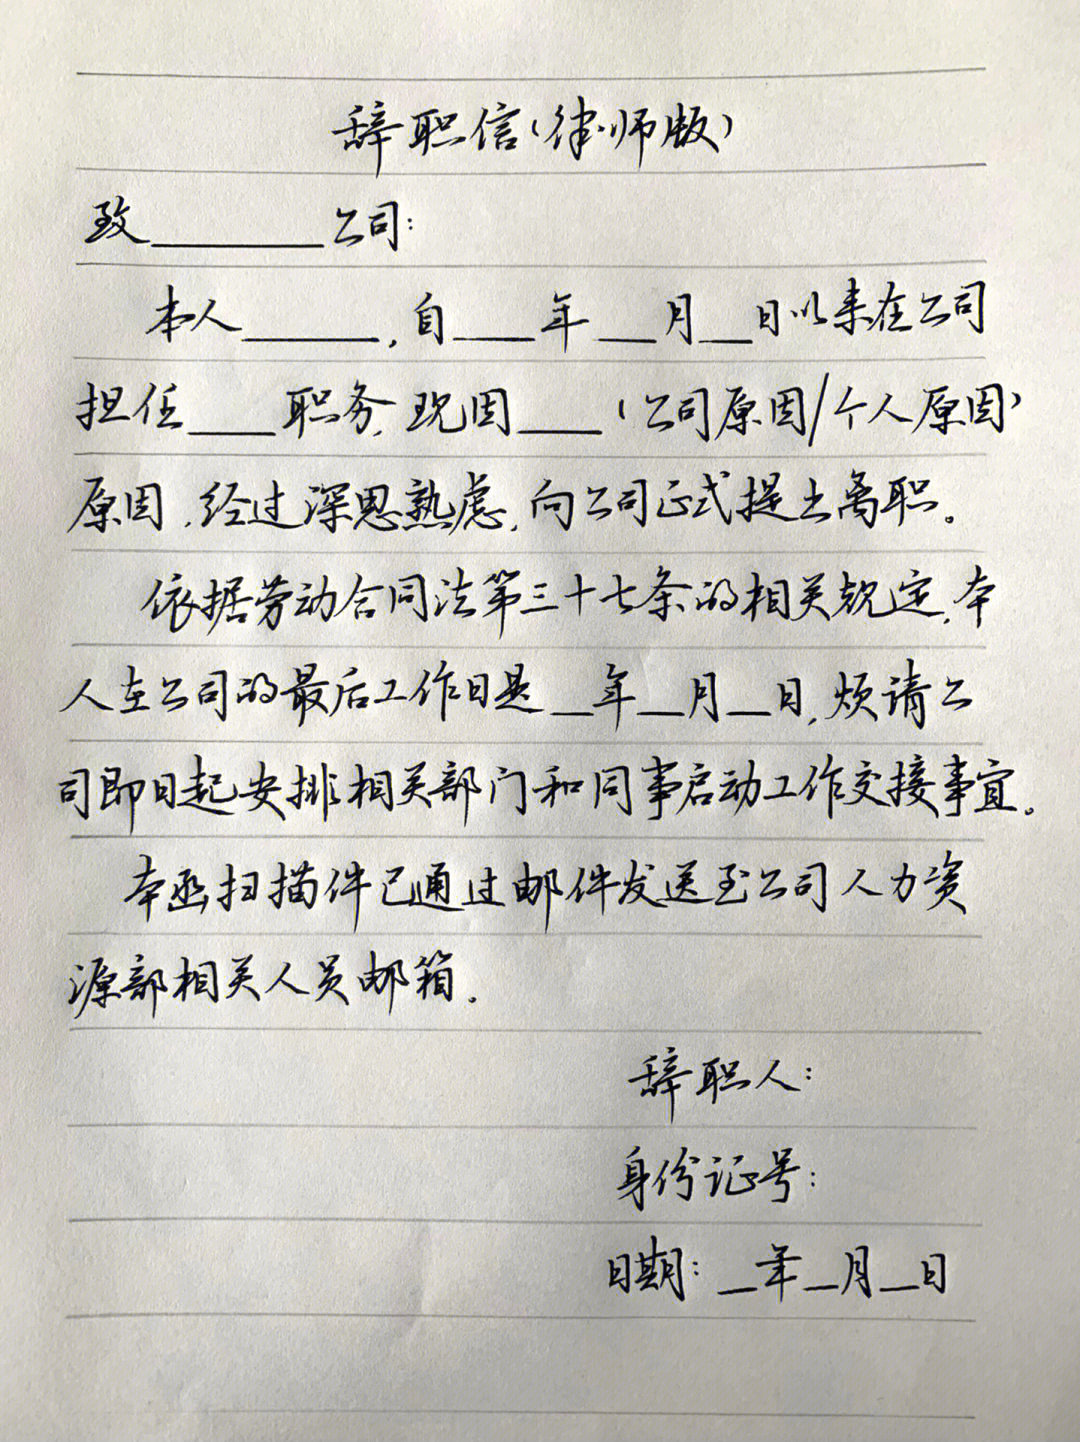 辞职信(律师版)
致________公司:
本人______,自____年___月__日以来在公司
担任____职务,现因____(公司原因/个人原因)
原因,经过深思熟虑,向公司正式提出离职。
依据劳动合同法第三十七条的相关规定,本
人在公司的最后工作日是__年__月__日,烦请公
司即日起安排相关部门和同事启动工作交接事宜。
本函扫描件已通过邮件发送至公司人力资
源部相关人员邮箱。
辞职人:
身份证号:
日期:__年__月__日